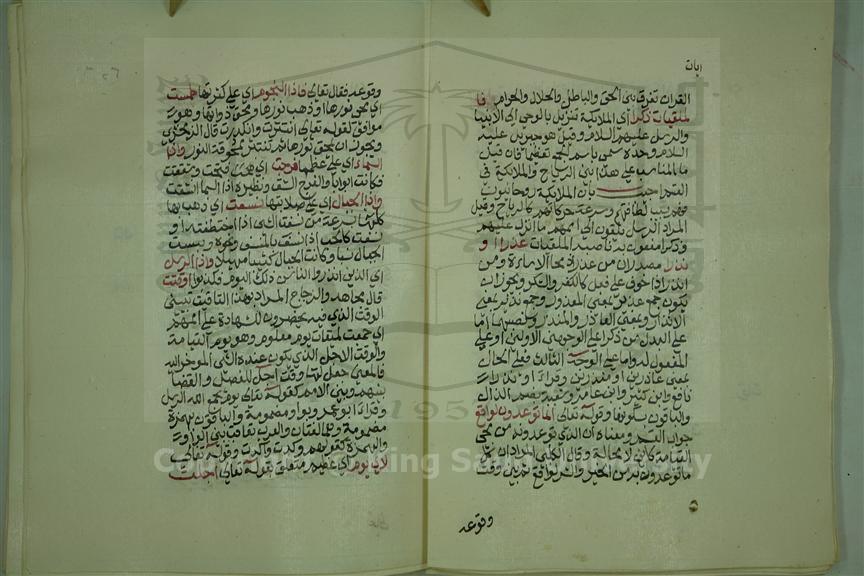 ايات
القران تفرق بين الحق والباطل والحلال والحرام فا
لملقيات ذكرا أي الملايكة تنزل بالوحي الى الانبيا
والرسل عليهم السلام وقيل هو جبريل عليه
السلام وحده سمي باسم الجمع تعظيما فان قيل
ما المناسب على هذا بين الرياح والملايكة في
القسم اجيب بان الملايكة روحانيون
فهم بسبب لطافتهم وسرعة حركاتهم كالرياح وقيل
المراد الرسل يلقون الى اممهم ما انزل عليهم
وذكرا مفعول به ناصبه الملقيات عذرا او
نذرا مصدران من عذر اذا محا الاساءة ومن
انذر اذا خوف على فعل كالكفر والشكر ويجوز ان
يكون جمع عذير بمعنى المعذرة وجمع نذير بمعنى
الانذار وبمعنى العاذر والمنذر ونصبهما اما
على البدل من ذكرا على الوجهين الاولين او على
المفعول له واما على الوجه الثالث فعلى الحال
بمعنى عاذرين او منذرين وقرا او نذرا
نافع وابن كثير وابن عامر وشعبة بضم الذال
والباقون بسكونها وقوله تعالى انما توعدون لواقع
جواب القسم ومعناه ان الذي توعدونه من مجي
القيامة كاين لا محالة وقال الكلبي المراد ان كل
ما توعدون به من الخير والشر لواقع ثم بين وقت
وقوعه
وقوعه فقال تعالى فاذا النجوم اي على كثرتها طمست
اي محي نورها او ذهب نورها ومحق ذواتها وهو
موافق لقوله تعالى انتثرت وانكدرت قال الزمخشري
ويجوز ان يمحق نورها ثم تنتثر ممحوقة النور واذا
السماء اي على عظمها فرجت اي فتحت وشققت
فكانت ابوابا والفرج الشق ونظيره اذا السما انشقت
واذا الجبال اي على صلابتها نسفت اي ذهب بها
كلها بسرعة من نسفت الشي اذا اختطفته او
نسفت كالحب اذا نسف بالمنسف ونحوه وبست
الجبال بسا وكانت الجبال كثيبا مهيلا واذا الرسل
اي الذين انذروا الناس ذلك اليوم فكذبوا اقتت
قال مجاهد والزجاج المراد بهذا التاقيت تبيين
الوقت الذي فيه يحضرون للشهادة على اممهم
اي جمعت لميقات يوم معلوم وهو يوم القيامة
والوقت الاجل الذي يكون عنده الشي الموخر اليه
فالمعنى جعل لها وقت اجل للفصل والقضا
بينهم وبين الامم كقوله تعالى يوم يجمع الله الرسل
وقرا ابو عمرو بواو مضمومة والباقون بهمزة
مضمومة وهما لغتان والعرب تعاقب بين الواو
والهمزة كقولهم وكدت واكدت وقوله تعالى
لاي يوم اي عظيم متعلق بقوله تعالى اجلت
1957
King Sa ty